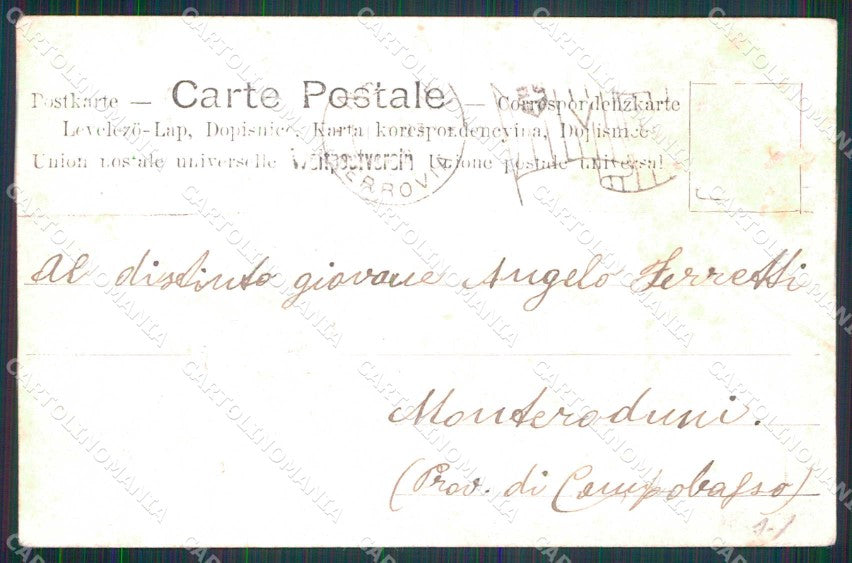 Postkarte — Carte Postale — Correspondenzkarte
Levelező-Lap, Dopisnice, Karta korespondencyjna, Dopisnice
Union postale universelle Weltpostverein Unione postale universal
FERROVIA
Al distinto giovane Angelo Ferretti
Monteroduni.
(Prov. di Campobasso)
CARTOLINOMANIA